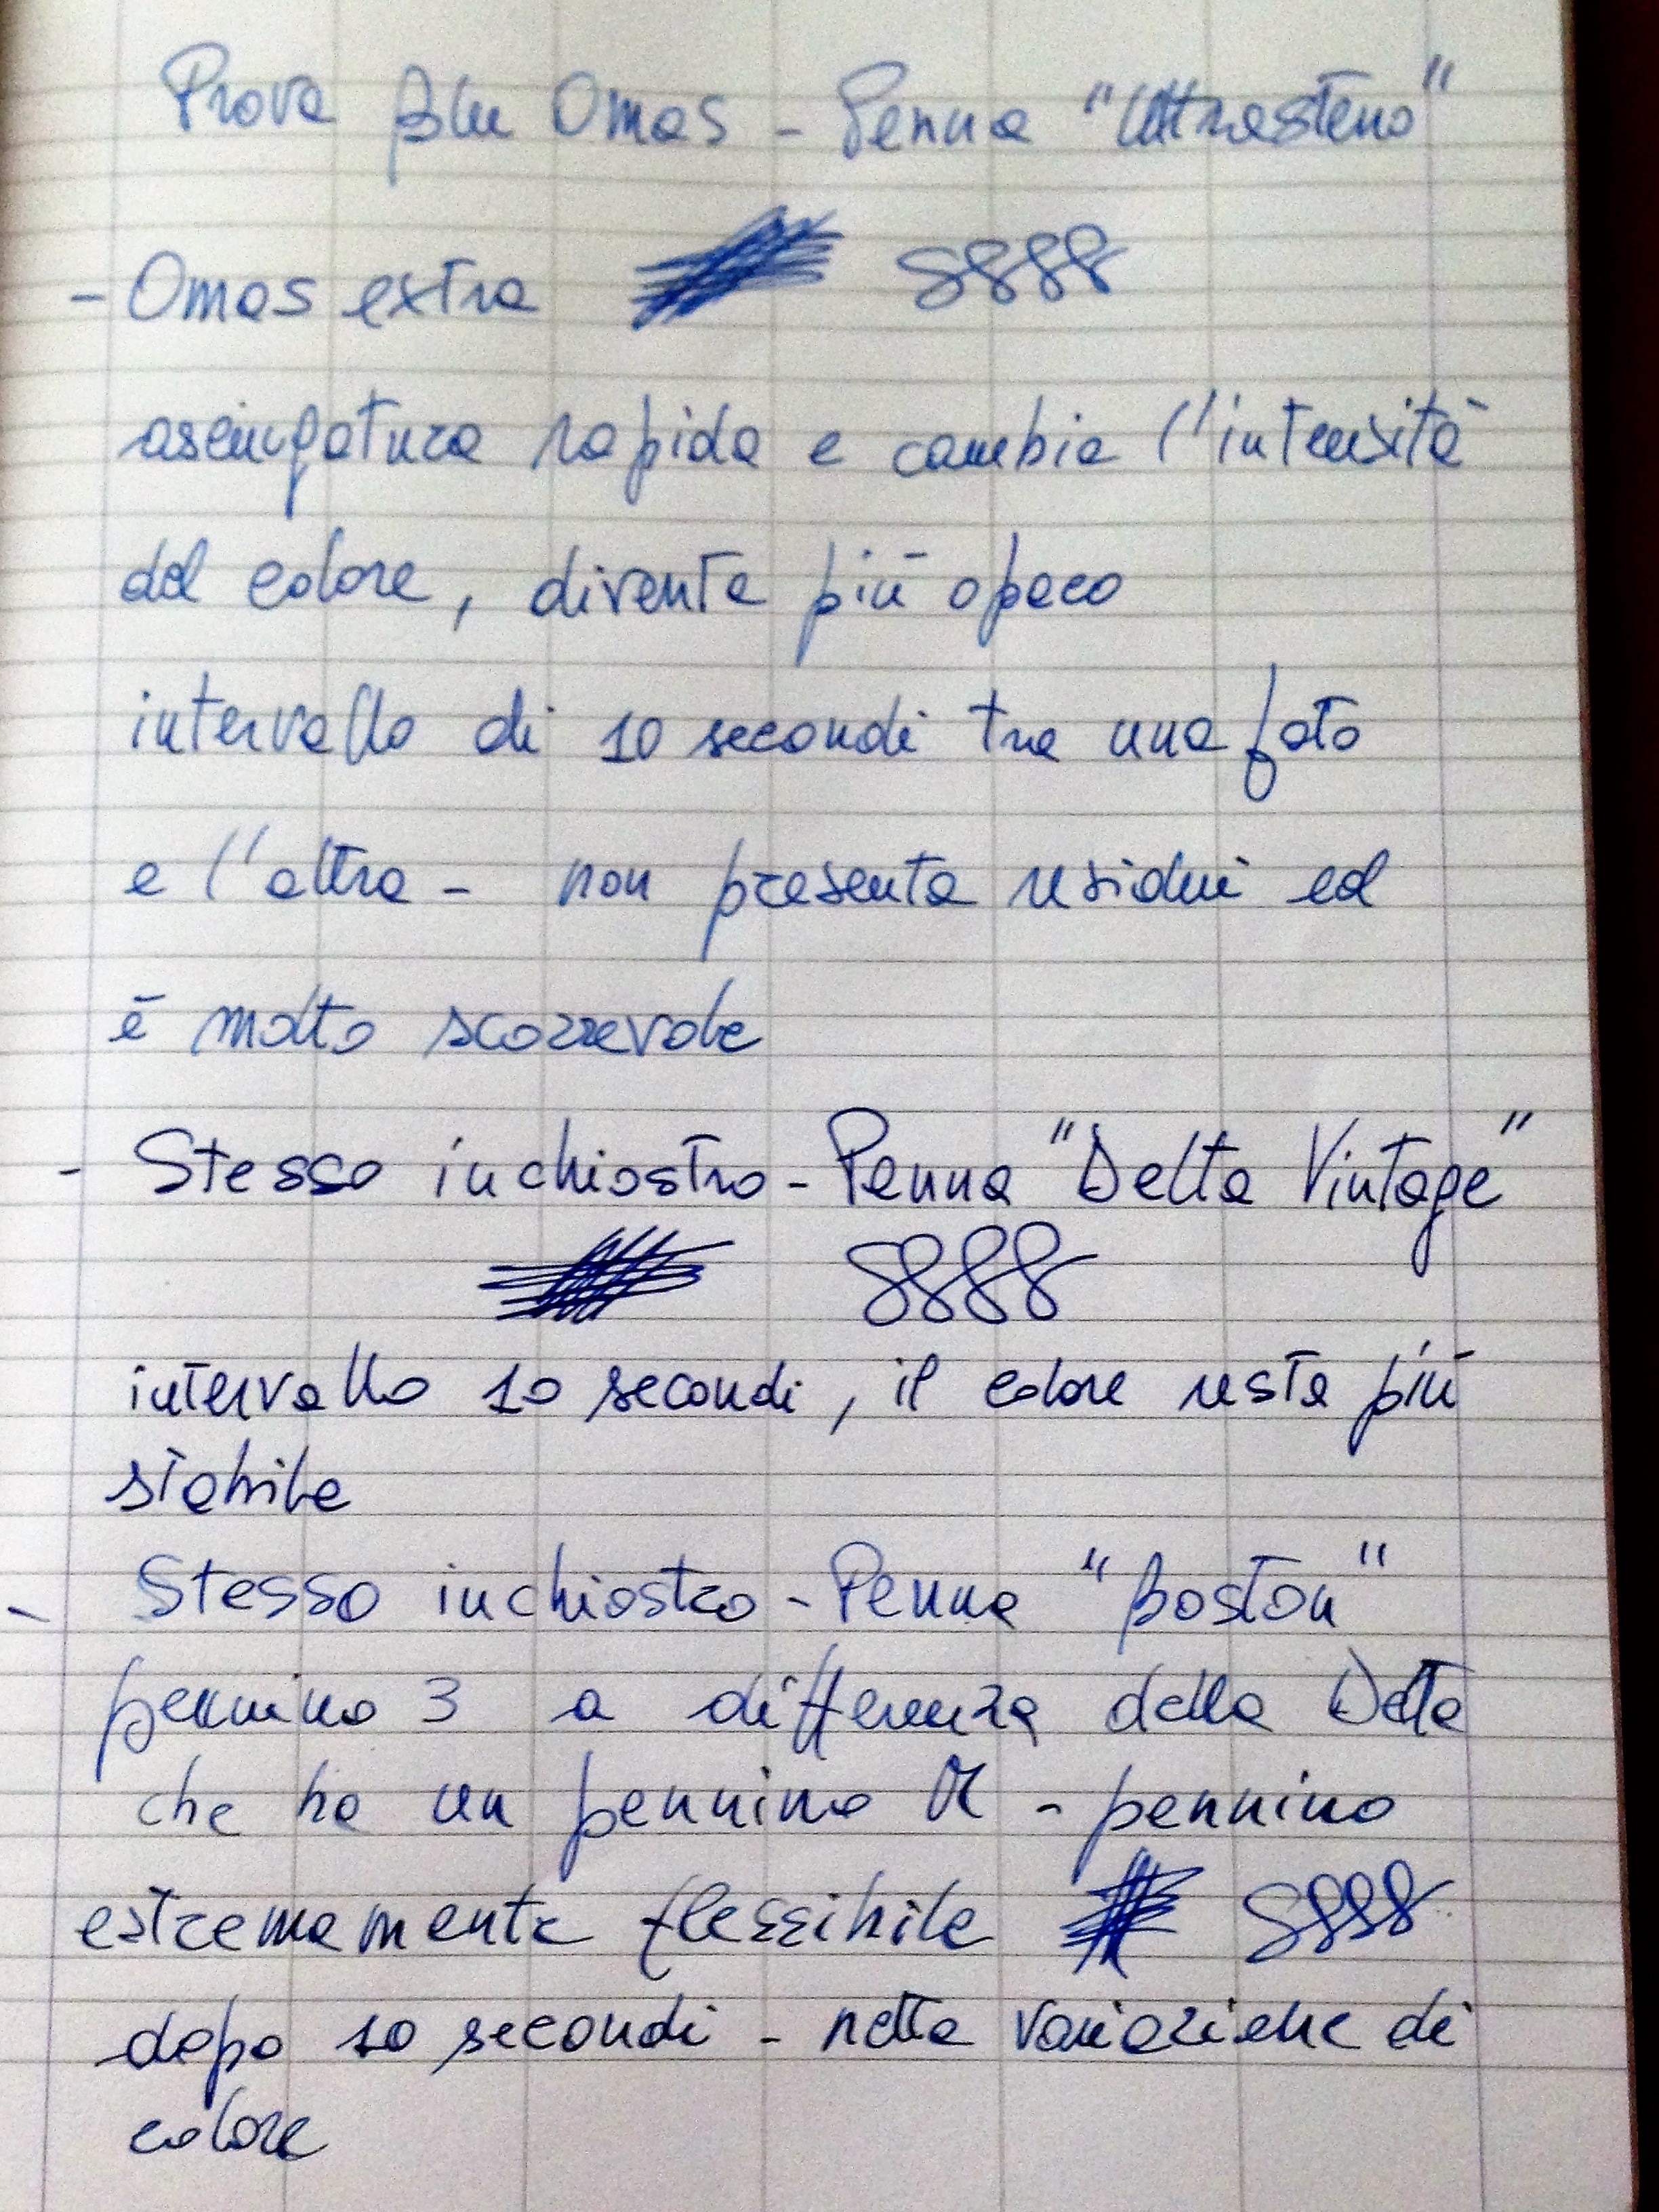 Prova Blu Omas - Penna "Ultrasteno"
- Omas extra 8888
asciugatura rapida e cambia l'intensità
del colore, diventa più opaco
intervallo di 10 secondi tra una foto
e l'altra - non presenta residui ed
è molto scorrevole
- Stesso inchiostro - Penna "Delta Vintage"
8888
intervallo 10 secondi, il colore resta più
stabile
- Stesso inchiostro - Penna "Boston"
pennino 3 a differenza della Delta
che ha un pennino M - pennino
estremamente flessibile 8888
dopo 10 secondi - netta variazione di
colore